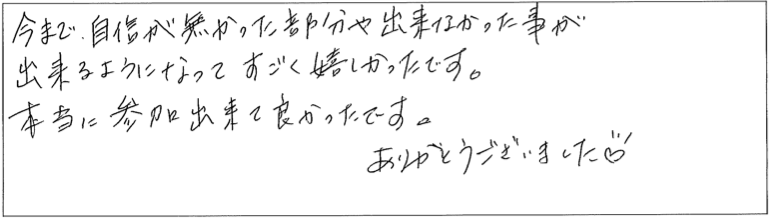 今まで自信が無かった部分や出来なかった事が
出来るようになってすごく嬉しかったです。
本当に参加出来て良かったです。
ありがとうございました♡